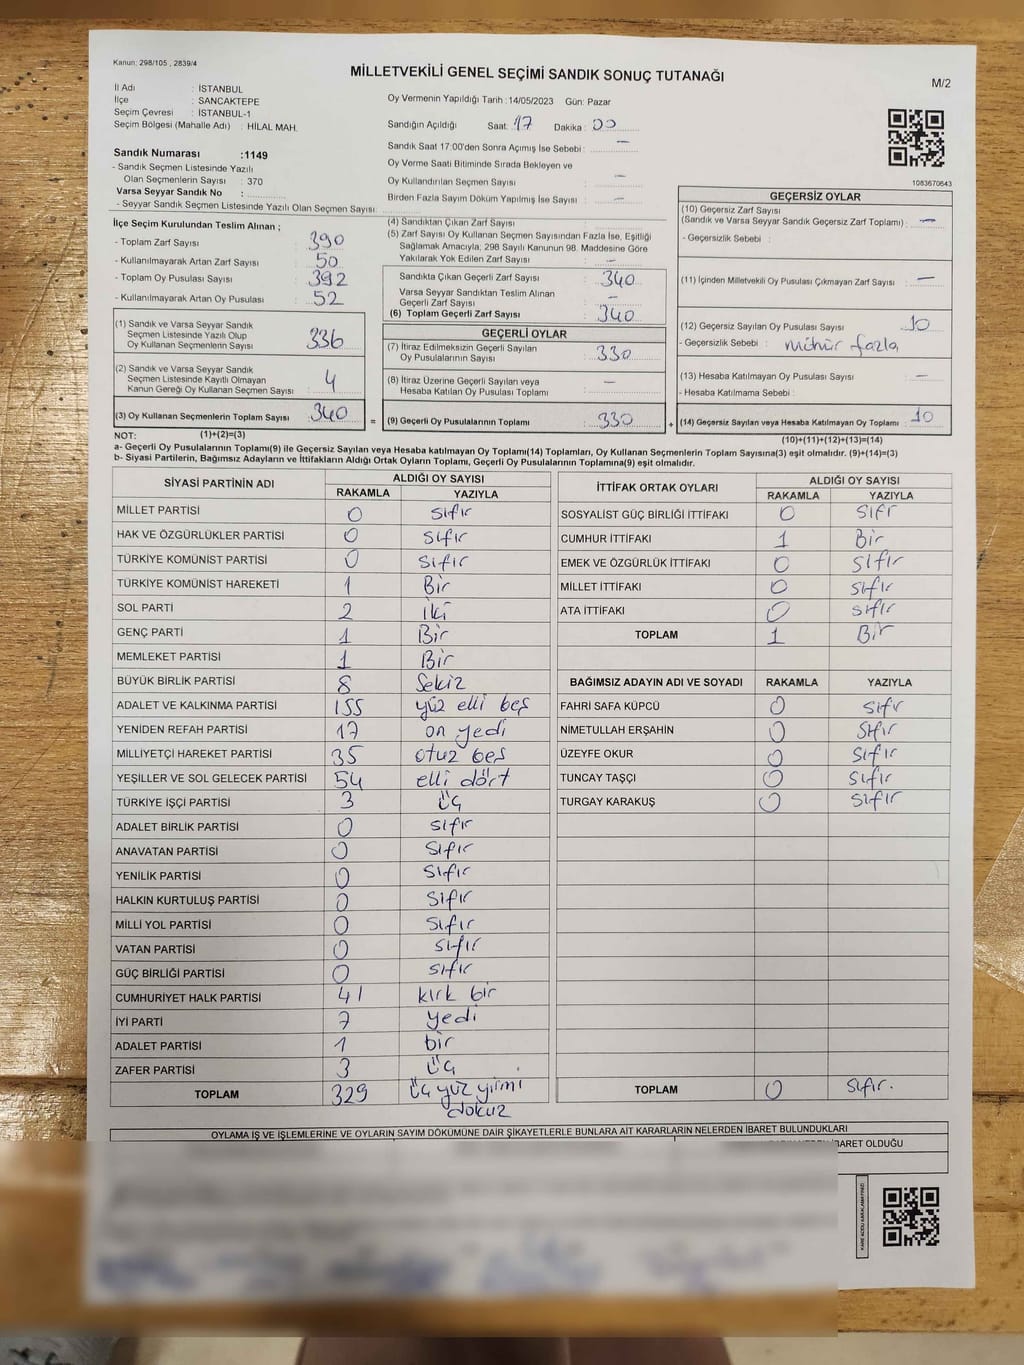 Kanun: 298/105 , 2839/4
MİLLETVEKİLİ GENEL SEÇİMİ SANDIK SONUÇ TUTANAĞI
M/2
İl Adı : İSTANBUL
İlçe : SANCAKTEPE
Seçim Çevresi : İSTANBUL-1
Seçim Bölgesi (Mahalle Adı) : HİLAL MAH.
Sandık Numarası :1149
- Sandık Seçmen Listesinde Yazılı
Olan Seçmenlerin Sayısı : 370
Varsa Seyyar Sandık No :
- Seyyar Sandık Seçmen Listesinde Yazılı Olan Seçmen Sayısı:
Oy Vermenin Yapıldığı Tarih :14/05/2023 Gün: Pazar
Sandığın Açıldığı Saat: 17 Dakika : 00
Sandık Saat 17:00'den Sonra Açımış İse Sebebi : —
Oy Verme Saati Bitiminde Sırada Bekleyen ve
Oy Kullandırılan Seçmen Sayısı : —
Birden Fazla Sayım Döküm Yapılmış İse Sayısı : —
1083670643
İlçe Seçim Kurulundan Teslim Alınan ;
- Toplam Zarf Sayısı : 390
- Kullanılmayarak Artan Zarf Sayısı : 50
- Toplam Oy Pusulası Sayısı : 392
- Kullanılmayarak Artan Oy Pusulası : 52
(1) Sandık ve Varsa Seyyar Sandık
Seçmen Listesinde Yazılı Olup
Oy Kullanan Seçmenlerin Sayısı : 336
(2) Sandık ve Varsa Seyyar Sandık
Seçmen Listesinde Kayıtlı Olmayan
Kanun Gereği Oy Kullanan Seçmen Sayısı : 4
(3) Oy Kullanan Seçmenlerin Toplam Sayısı : 340
(4) Sandıktan Çıkan Zarf Sayısı :
(5) Zarf Sayısı Oy Kullanan Seçmen Sayısından Fazla İse, Eşitliği
Sağlamak Amacıyla; 298 Sayılı Kanunun 98. Maddesine Göre
Yakılarak Yok Edilen Zarf Sayısı : —
Sandıkta Çıkan Geçerli Zarf Sayısı : 340
Varsa Seyyar Sandıktan Teslim Alınan
Geçerli Zarf Sayısı : —
(6) Toplam Geçerli Zarf Sayısı : 340
GEÇERLİ OYLAR
(7) İtiraz Edilmeksizin Geçerli Sayılan
Oy Pusulalarının Sayısı : 330
(8) İtiraz Üzerine Geçerli Sayılan veya
Hesaba Katılan Oy Pusulası Toplamı : —
= (9) Geçerli Oy Pusulalarının Toplamı : 330 +
GEÇERSİZ OYLAR
(10) Geçersiz Zarf Sayısı
(Sandık ve Varsa Seyyar Sandık Geçersiz Zarf Toplamı) : —
- Geçersizlik Sebebi :
(11) İçinden Milletvekili Oy Pusulası Çıkmayan Zarf Sayısı : —
(12) Geçersiz Sayılan Oy Pusulası Sayısı : 10
- Geçersizlik Sebebi : mühür fazla
(13) Hesaba Katılmayan Oy Pusulası Sayısı : —
- Hesaba Katılmama Sebebi :
(14) Geçersiz Sayılan veya Hesaba Katılmayan Oy Toplamı : 10
NOT: (1)+(2)=(3)
(10)+(11)+(12)+(13)=(14)
a- Geçerli Oy Pusulalarının Toplamı(9) ile Geçersiz Sayılan veya Hesaba katılmayan Oy Toplamı(14) Toplamları, Oy Kullanan Seçmenlerin Toplam Sayısına(3) eşit olmalıdır. (9)+(14)=(3)
b- Siyasi Partilerin, Bağımsız Adayların ve İttifakların Aldığı Ortak Oyların Toplamı, Geçerli Oy Pusulalarının Toplamına(9) eşit olmalıdır.
SİYASİ PARTİNİN ADI ALDIĞI OY SAYISI
RAKAMLA YAZIYLA
MİLLET PARTİSİ 0 sıfır
HAK VE ÖZGÜRLÜKLER PARTİSİ 0 sıfır
TÜRKİYE KOMÜNİST PARTİSİ 0 sıfır
TÜRKİYE KOMÜNİST HAREKETİ 1 Bir
SOL PARTİ 2 iki
GENÇ PARTİ 1 Bir
MEMLEKET PARTİSİ 1 Bir
BÜYÜK BİRLİK PARTİSİ 8 Sekiz
ADALET VE KALKINMA PARTİSİ 155 yüz elli beş
YENİDEN REFAH PARTİSİ 17 on yedi
MİLLİYETÇİ HAREKET PARTİSİ 35 otuz beş
YEŞİLLER VE SOL GELECEK PARTİSİ 54 elli dört
TÜRKİYE İŞÇİ PARTİSİ 3 üç
ADALET BİRLİK PARTİSİ 0 sıfır
ANAVATAN PARTİSİ 0 sıfır
YENİLİK PARTİSİ 0 sıfır
HALKIN KURTULUŞ PARTİSİ 0 sıfır
MİLLİ YOL PARTİSİ 0 sıfır
VATAN PARTİSİ 0 sıfır
GÜÇ BİRLİĞİ PARTİSİ 0 sıfır
CUMHURİYET HALK PARTİSİ 41 kırk bir
İYİ PARTİ 7 yedi
ADALET PARTİSİ 1 bir
ZAFER PARTİSİ 3 üç
TOPLAM 329 üç yüz yirmi
dokuz
İTTİFAK ORTAK OYLARI ALDIĞI OY SAYISI
RAKAMLA YAZIYLA
SOSYALİST GÜÇ BİRLİĞİ İTTİFAKI 0 sıfr
CUMHUR İTTİFAKI 1 Bir
EMEK VE ÖZGÜRLÜK İTTİFAKI 0 sıfır
MİLLET İTTİFAKI 0 sıfır
ATA İTTİFAKI 0 sıfır
TOPLAM 1 Bir
BAĞIMSIZ ADAYIN ADI VE SOYADI RAKAMLA YAZIYLA
FAHRİ SAFA KÜPCÜ 0 sıfır
NİMETULLAH ERŞAHİN 0 sıfır
ÜZEYFE OKUR 0 sıfır
TUNCAY TAŞÇI 0 sıfır
TURGAY KARAKUŞ 0 sıfır
TOPLAM 0 sıfır.
OYLAMA İŞ VE İŞLEMLERİNE VE OYLARIN SAYIM DÖKÜMÜNE DAİR ŞİKAYETLERLE BUNLARA AİT KARARLARIN NELERDEN İBARET BULUNDUKLARI
İBARET OLDUĞU